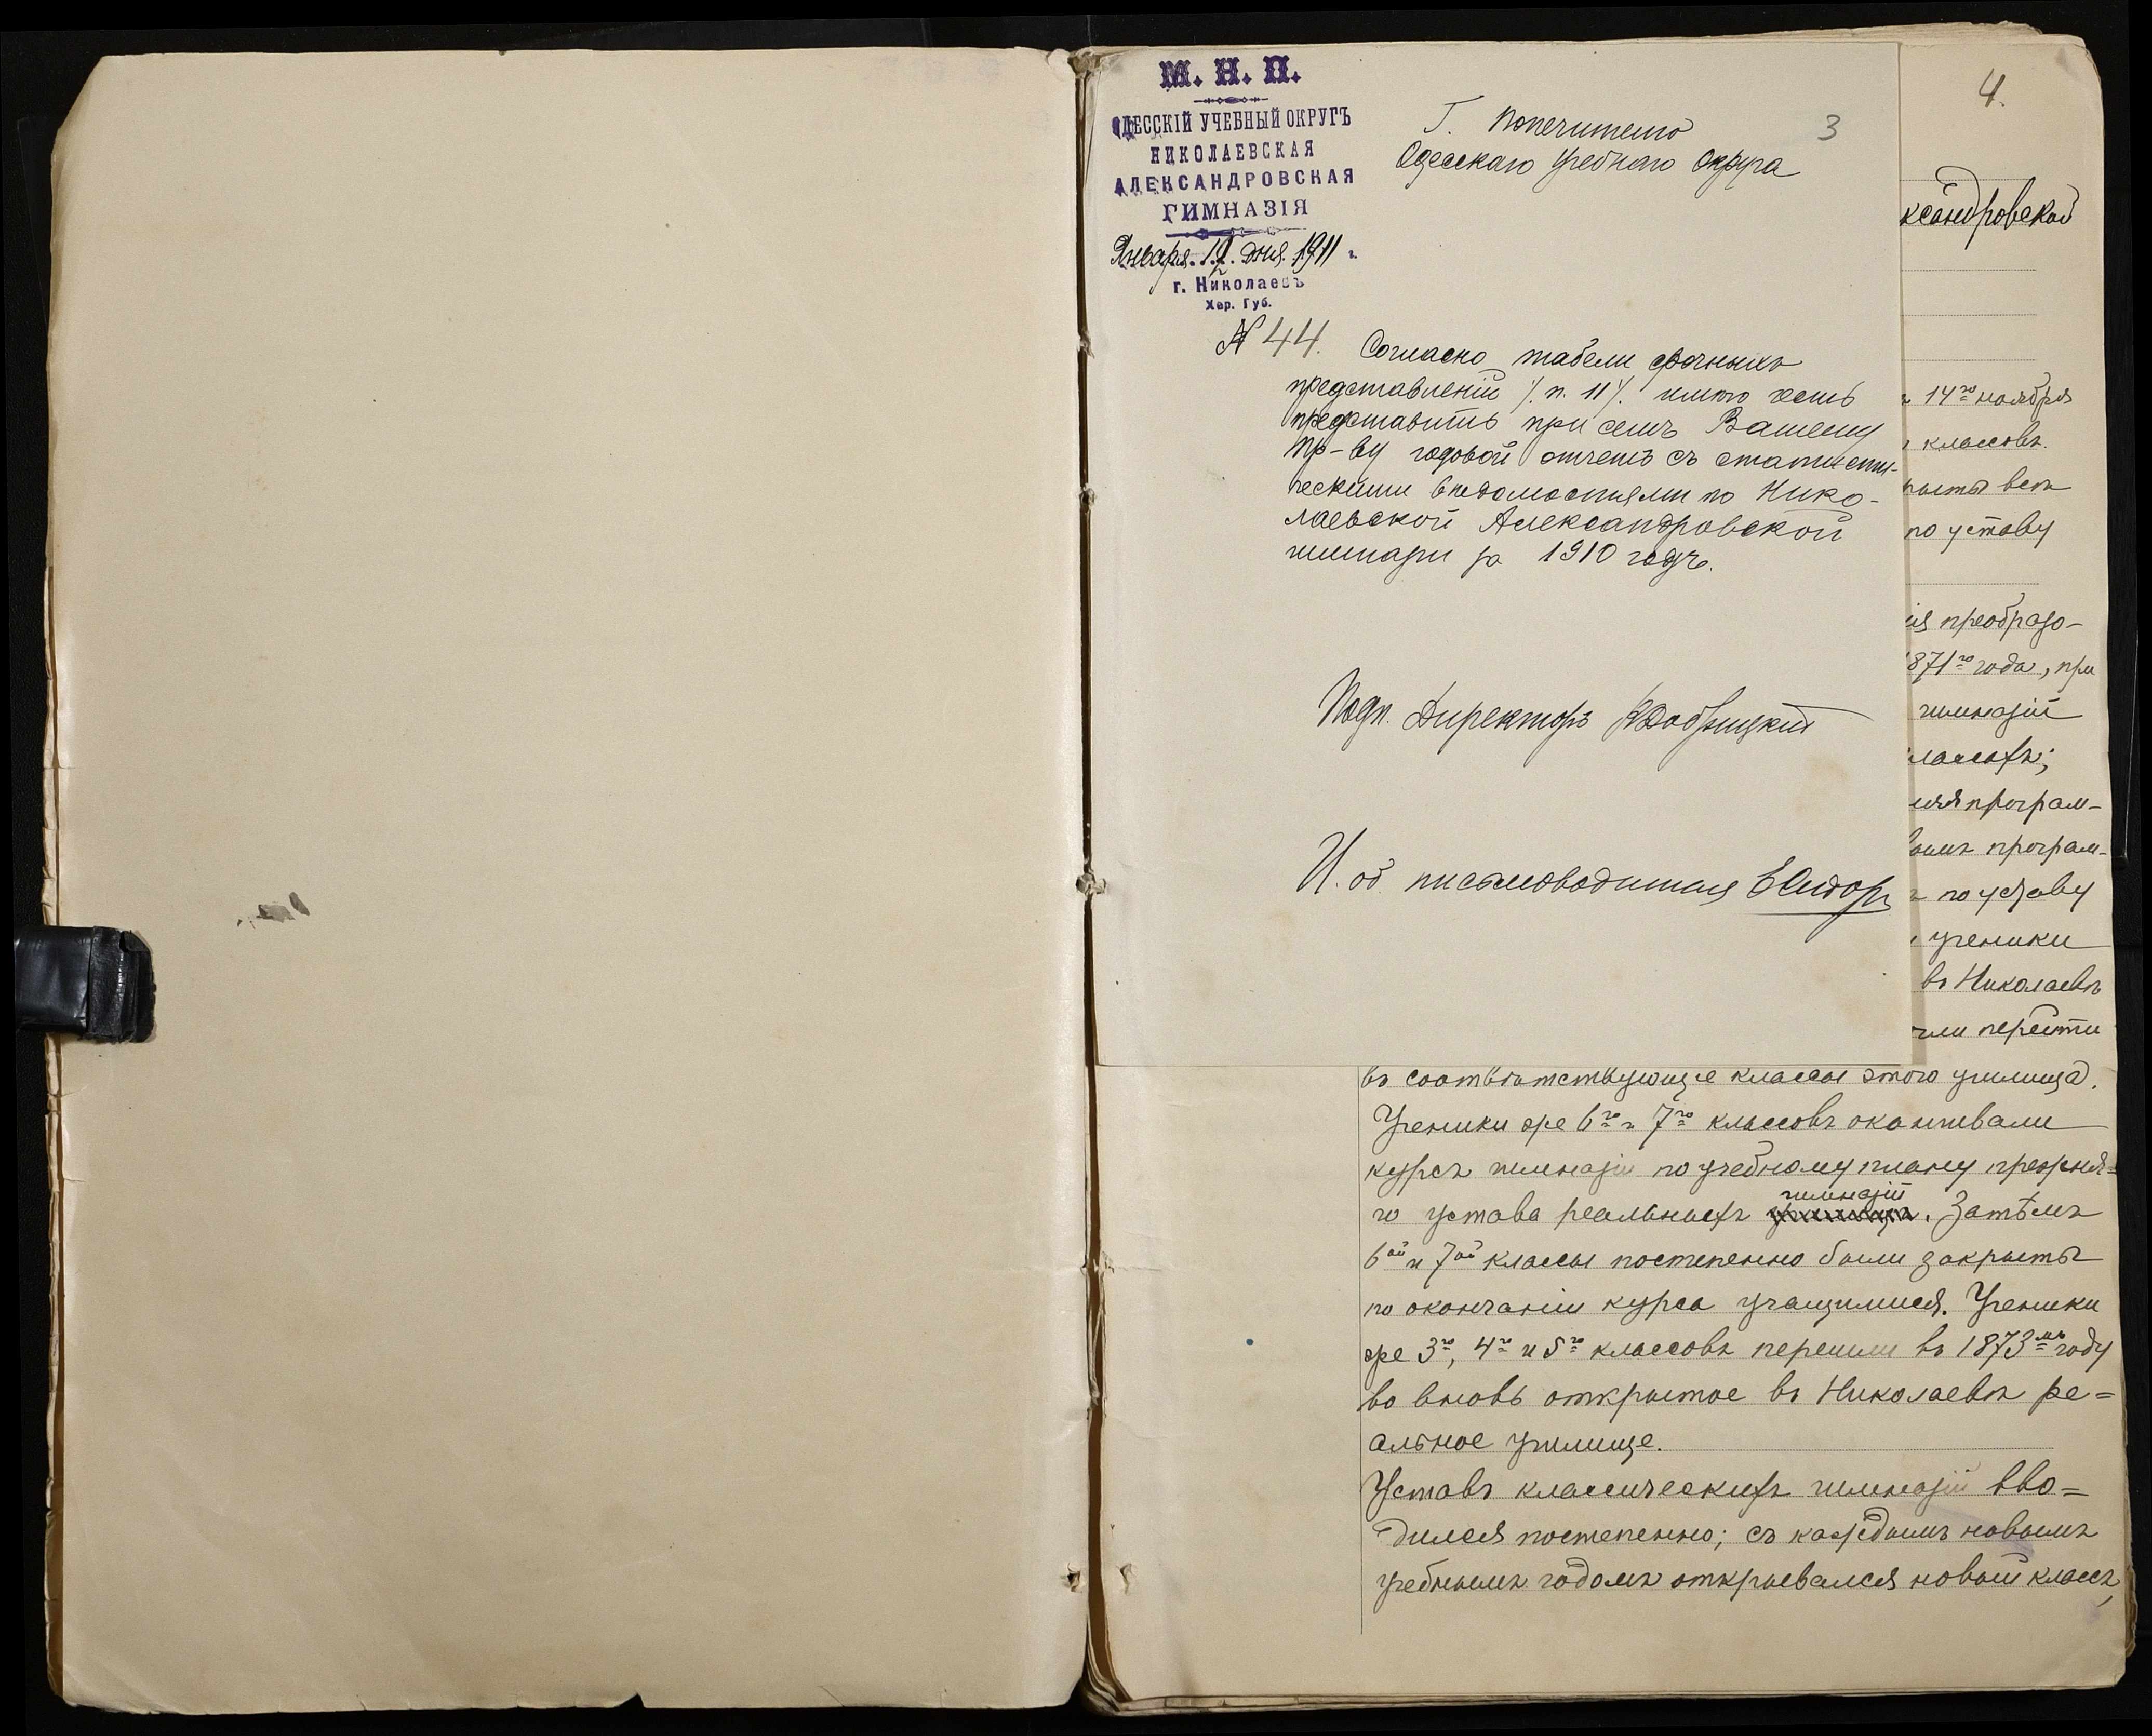 М. Н. П.
ОДЕССКІЙ УЧЕБНЫЙ ОКРУГЪ
НИКОЛАЕВСКАЯ
АЛЕКСАНДРОВСКАЯ
ГИМНАЗІЯ
Января 12 дня 1911 г.
г. Николаевъ
Хер. Губ.
№ 44.
3
Г. Попечителю
Одесскаго Учебнаго Округа
Согласно табели срочныхъ
представленій /п. 11/. имѣю честь
представить при семъ Вашему
Пр-ву годовой отчетъ съ статисти-
ческими вѣдомостями по Нико-
лаевской Александровской
гимназіи за 1910 годъ.
Подп. Директоръ
И. об. письмоводителя
4.
ксандровской
14го ноября
классовъ.
рыты всѣ
по уставу
ія преобразо-
1871го года, при
гимназій
лассахъ;
програм-
выхъ програм-
по уставу
ученики
въ Николаевѣ
гли перейти
въ соотвѣтствующіе классы этого училища.
Ученики же 6го и 7го классовъ оканчивали
курсъ гимназіи по учебному плану прежня=
го устава реальныхъ гимназій. Затѣмъ
6ой и 7ой классы постепенно были закрыты
по окончаніи курса учащимися. Ученики
же 3го, 4го и 5го классовъ перешли въ 1873мъ году
во вновь открытое въ Николаевѣ ре=
альное училище.
Уставъ классическихъ гимназій вво=
дился постепенно; съ каждымъ новымъ
учебнымъ годомъ открывался новый классъ,